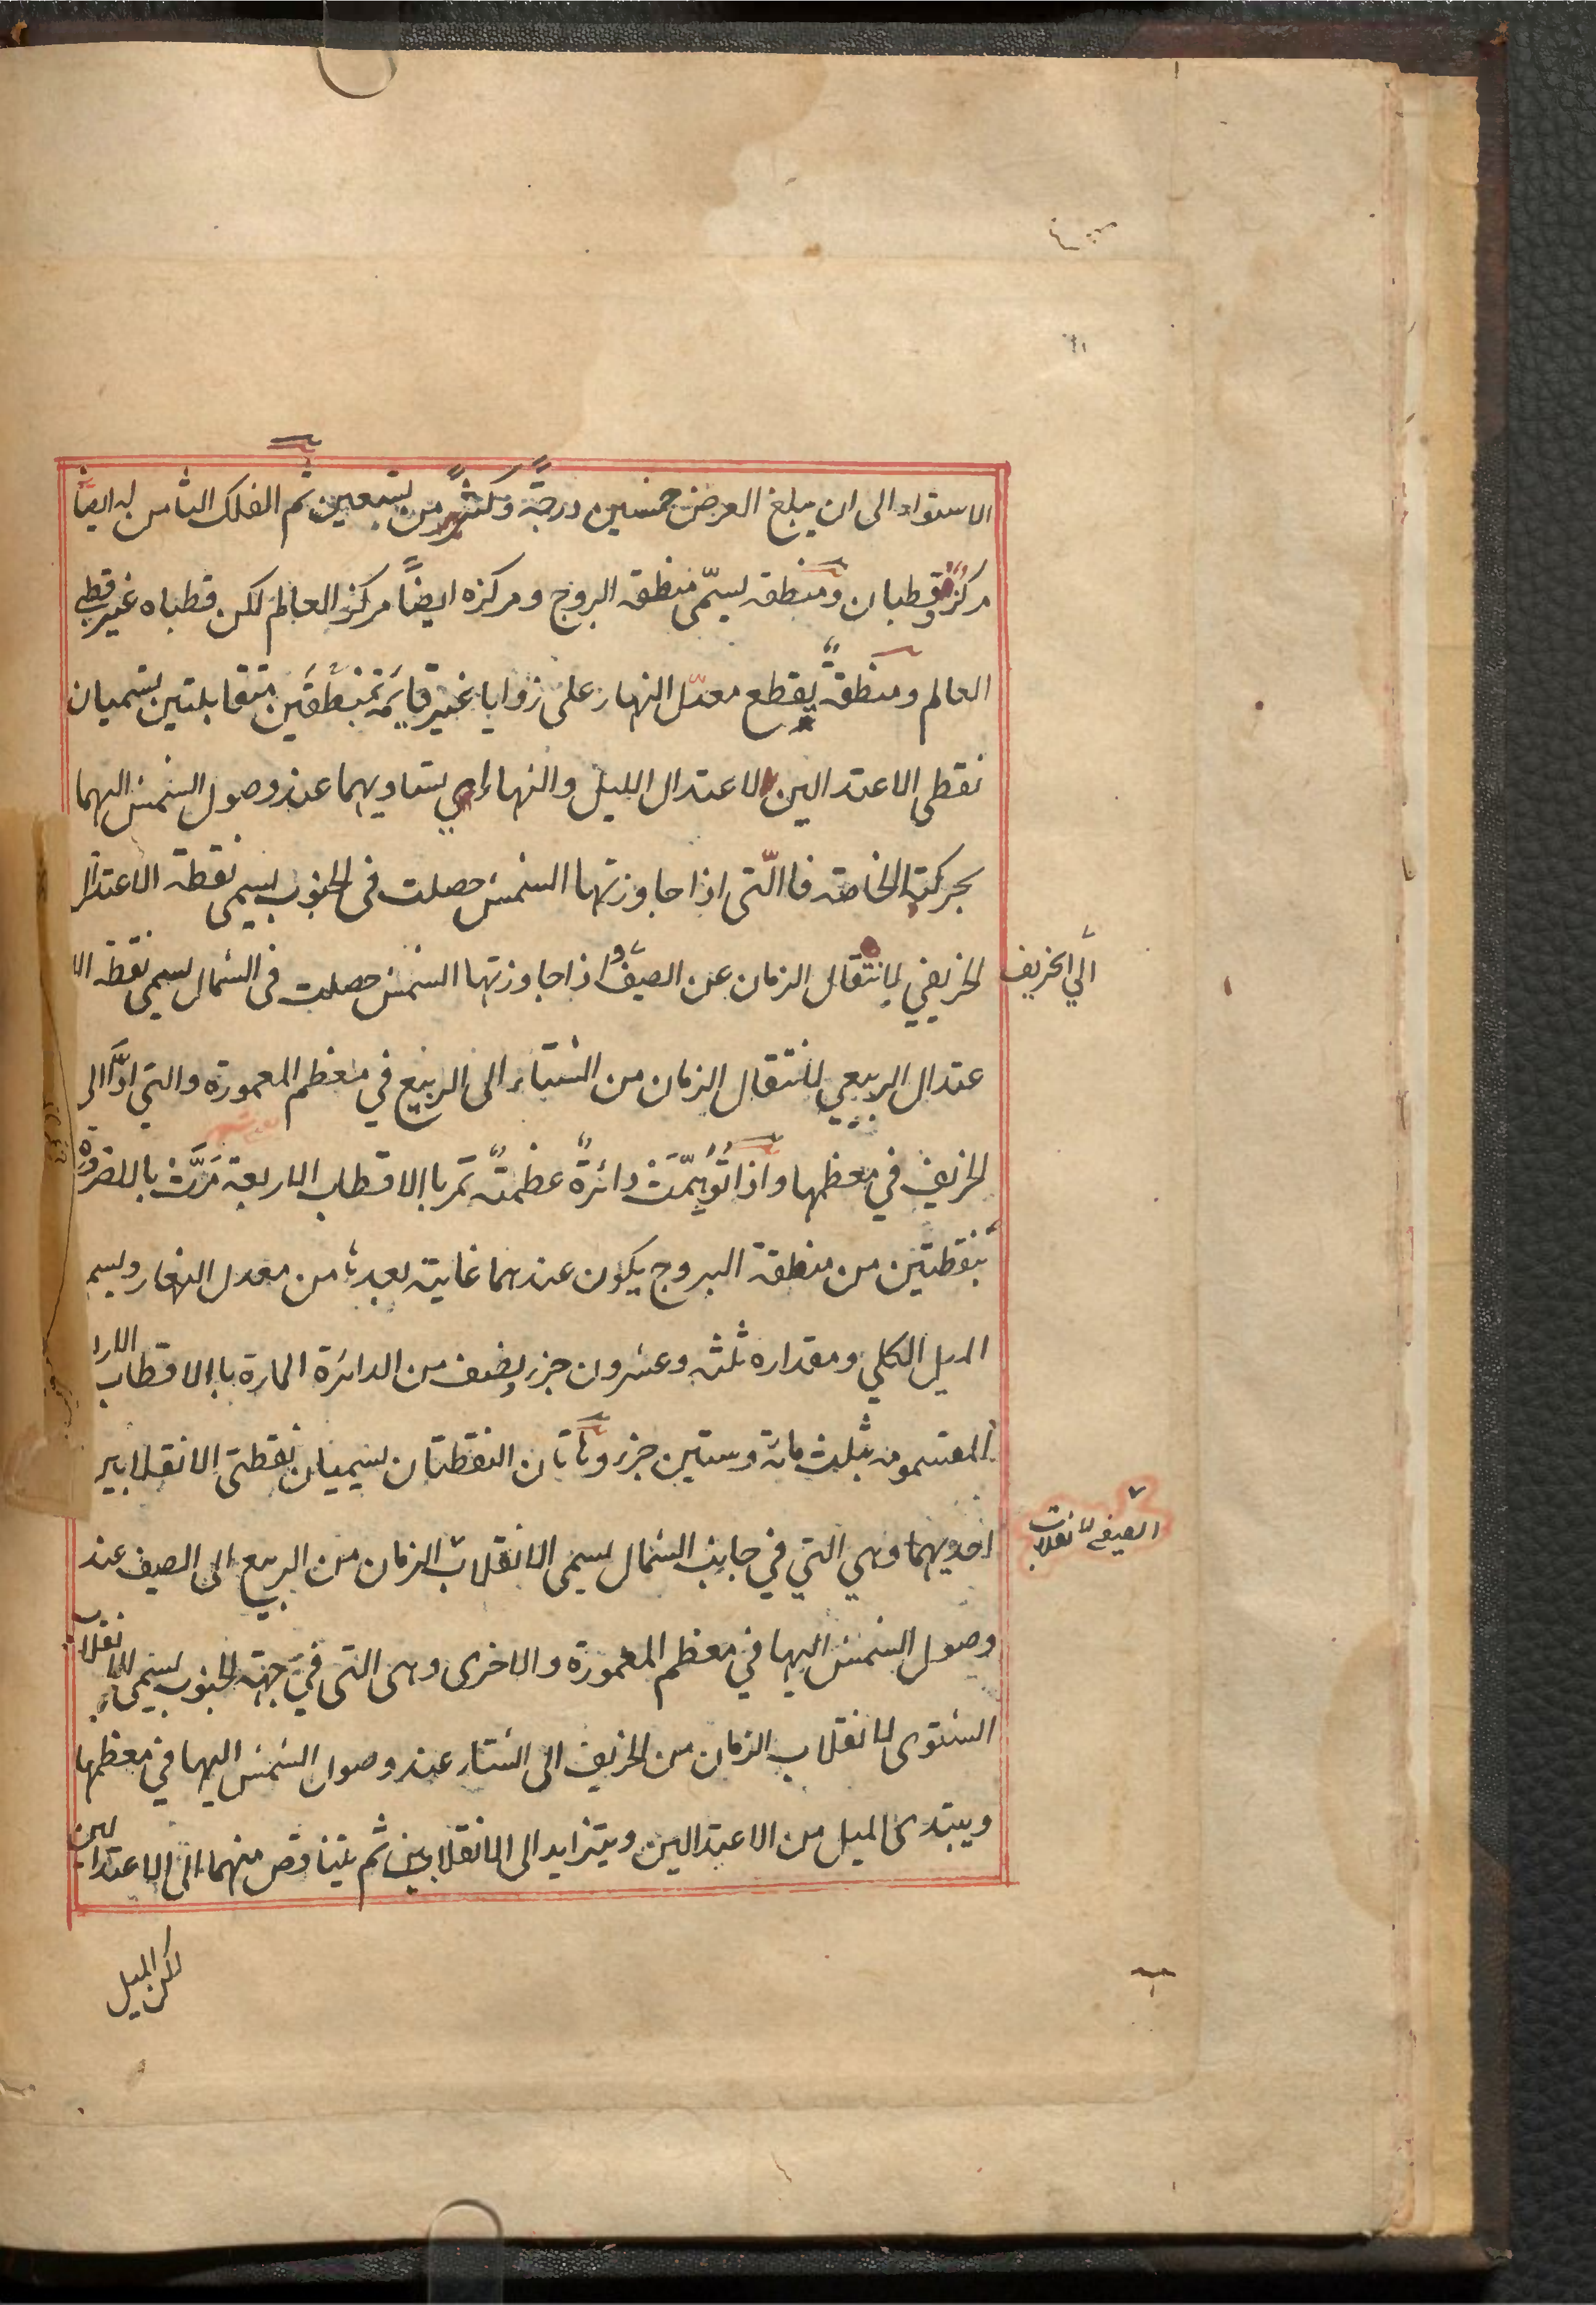 الاستواء الى ان يبلغ العرض خمسين درجةً وكثيرًا من تسعين ثم الفلك الثامن له ايضا
مركزٌ وقطبان ومنطقة يسمّى منطقة البروج ومركزه ايضاً مركز العالم لكن قطباه غير قطبي
العالم ومنطقةً يقطع معدّل النهار على زوايا غير قايمة بنقطتين متقابلتين يسميان
نقطى الاعتدالين لاعتدال الليل والنهار اي تساويهما عند وصول الشمس اليهما
بحركته الخاصة فاالّتى اذا جاوزتها الشمس حصلت فى الجنوب يسمى نقطة الاعتدال
الخريفي لانتقال الزمان عن الصيف و اذا جاوزتها الشمس حصلت فى الشمال يسمى نقطة الا
الي الخريف
عتدال الربيعي لانتقال الزمان من الشتاء الى الربيع في معظم المعمورة والتي
الخريف في معظمها واذا تُوُهِّمَتْ دائرةً عظمةً تمر باالاقطاب الاربعة مَرَّتْ باالضرورة
بنقطتين من منطقة البروج يكون عندهما غاية بعدها من معدل النهار ويسمى
الميل الكلي ومقداره ثلثة وعشرون جزء ونصف من الدائرة المارة باالاقطاب الارا
المقسمومه بثلث مائة وستين جزء وهاتان النقطتان يسيميان نقطتى الانقلابين
احديهما وهي التي في جانب الشمال يسمى الانقلاب الزمان من الربيع الى الصيف عند
الصيفى لانقلاب
وصول الشمس اليها في معظم المعمورة والاخرى وهى التى في جهة الجنوب يسمى الانقلاب
الشتوى لانقلاب الزمان من الخريف الى الشتاء عند وصول الشمس اليها في معظمها
ويبتدى الميل من الاعتدالين ويتزايد الى الانقلابين ثم يتناقص منهما الى الاعتدالين
لكن الميل